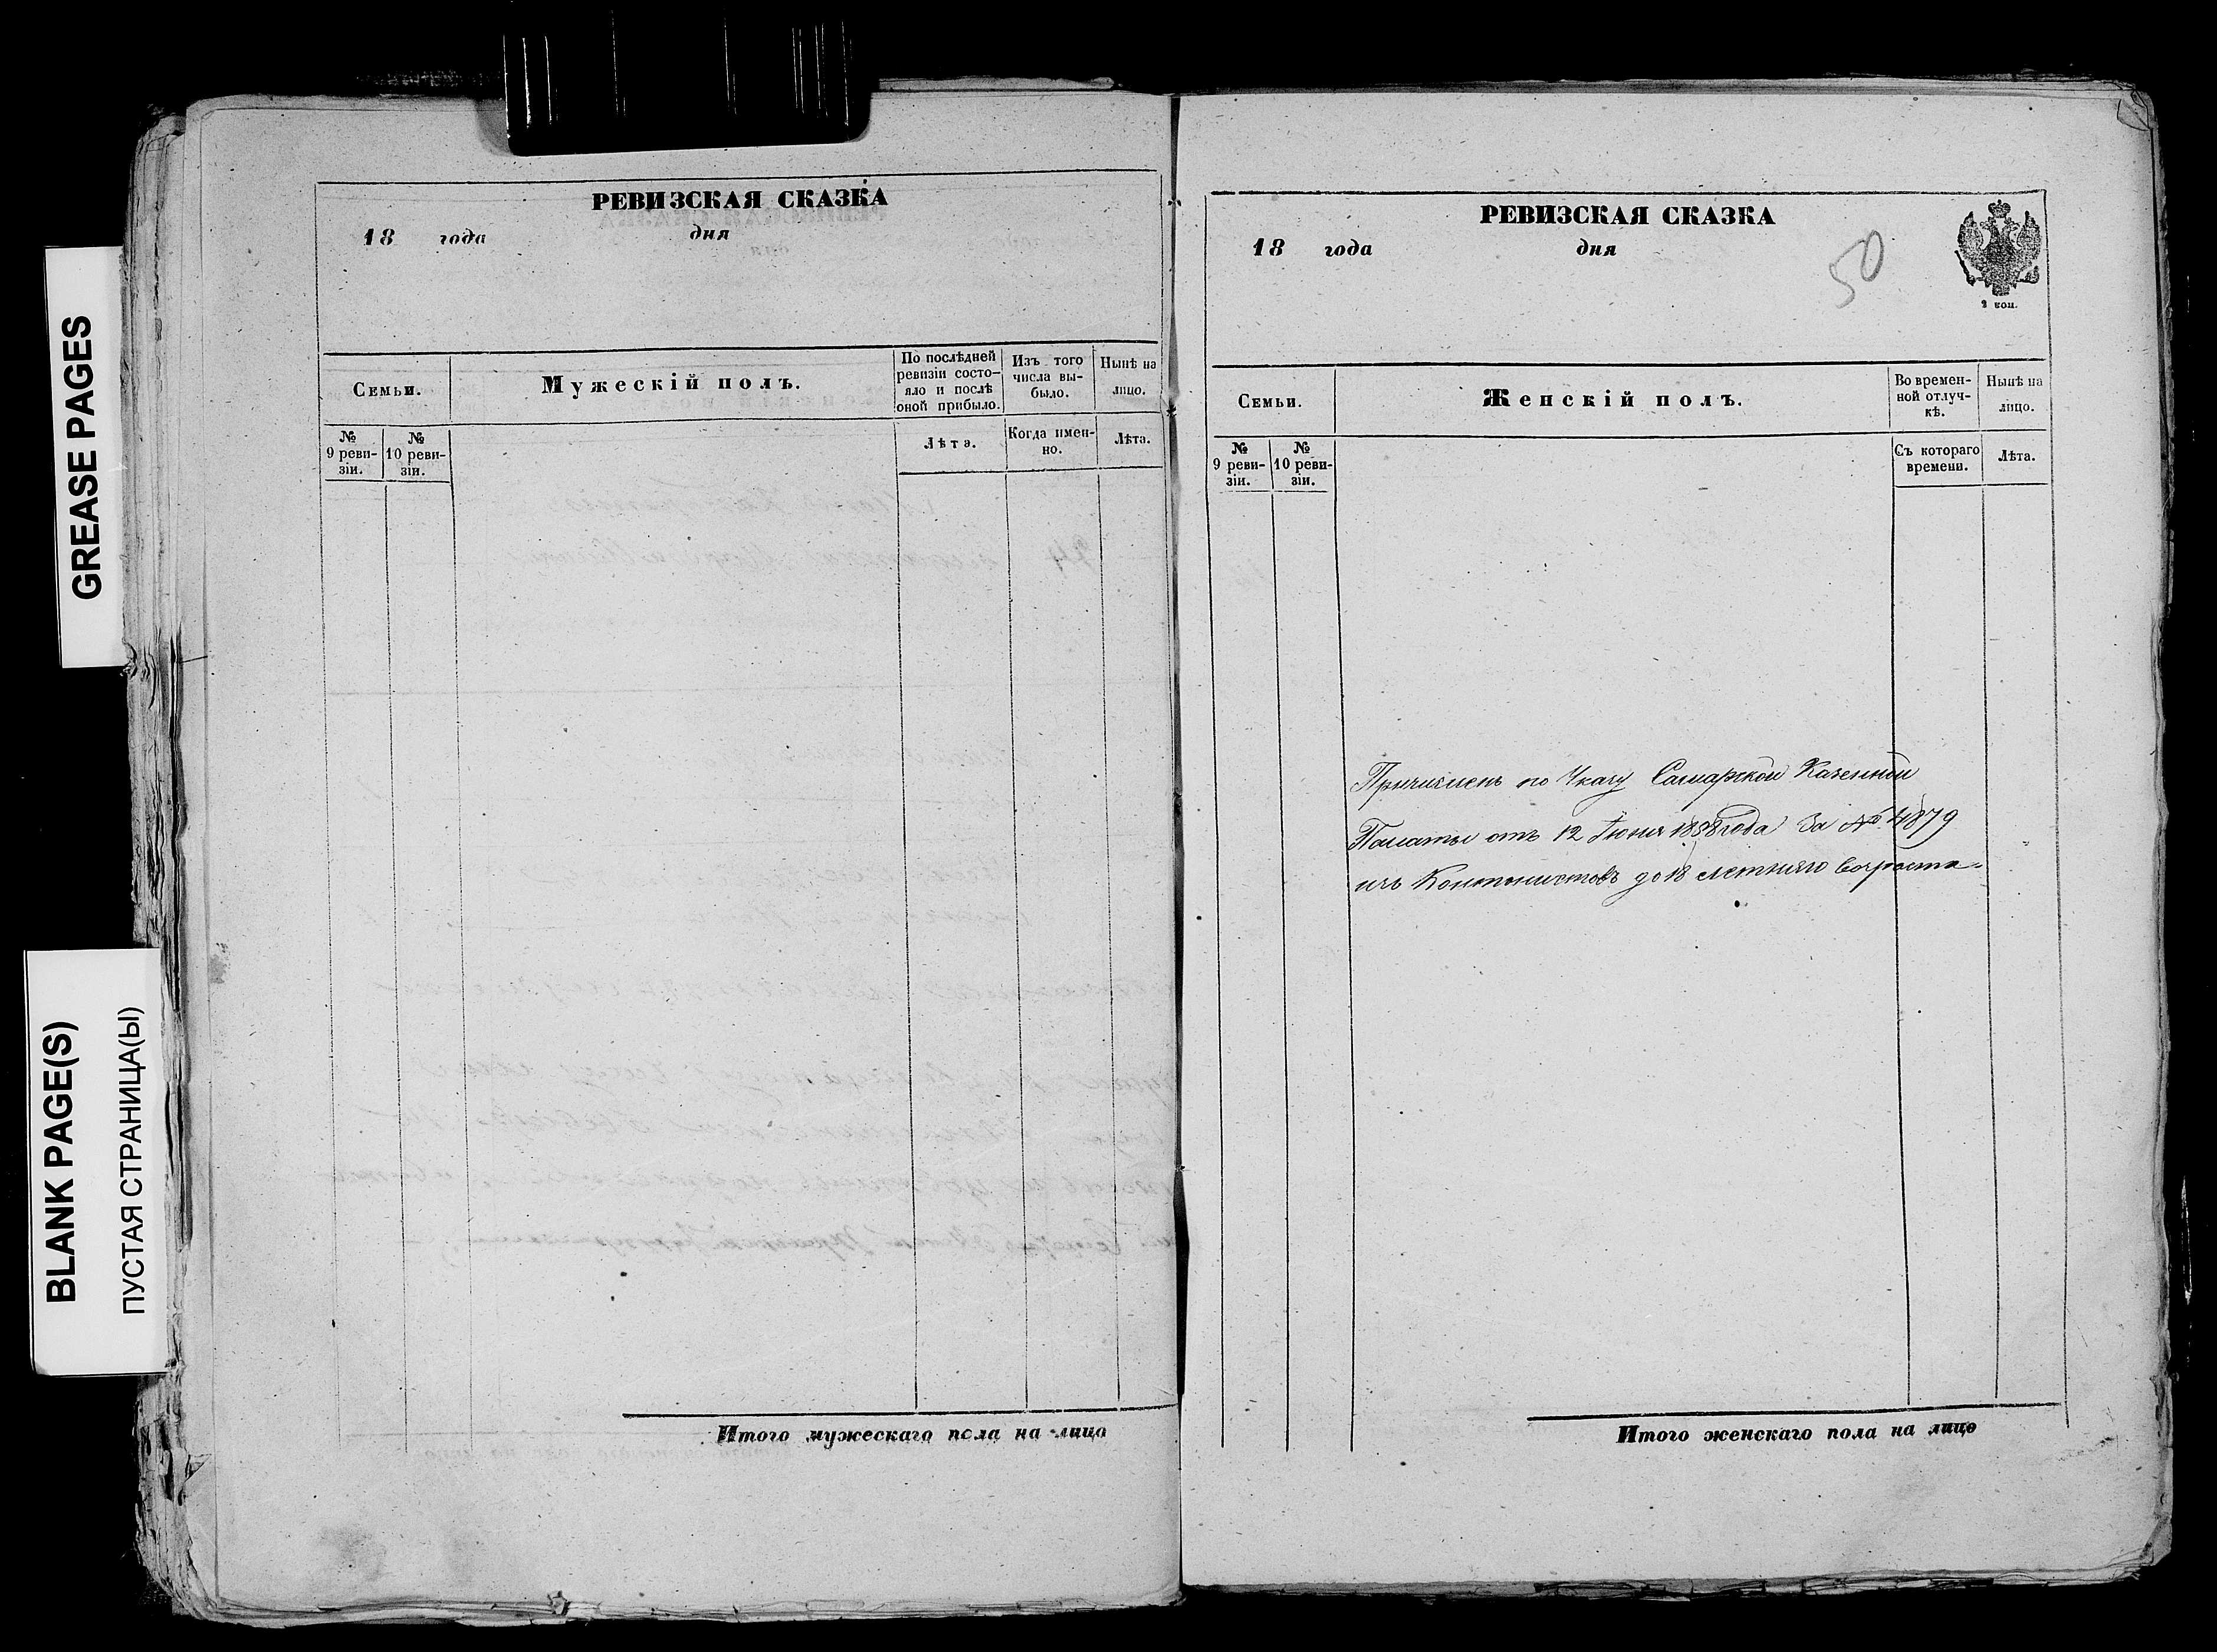 GREASE PAGES
BLANK PAGE(S)
ПУСТАЯ СТРАНИЦА(Ы)
РЕВИЗСКАЯ СКАЗКА
18 года дня
Семьи.
Мужескій полъ.
По послѣдней
ревизіи состо-
яло и послѣ
оной прибыло.
Изъ того
числа вы-
было.
Нынѣ на
лицо.
№
9 реви-
зіи.
№
10 реви-
зіи.
Лѣта.
Когда имен-
но.
Лѣта.
Итого мужескаго пола на лицо
РЕВИЗСКАЯ СКАЗКА
18 года дня
50
2 коп.
Семьи.
Женскій полъ.
Во времен-
ной отлуч-
кѣ.
Нынѣ на
лицо.
№
9 реви-
зіи.
№
10 реви-
зіи.
Съ котораго
времени.
Лѣта.
Причисленъ по Указу Самарской Казенной
Палаты отъ 12 Іюня 1858 года За № 4879
изъ Кантонистовъ до 18 летняго возраста
Итого женскаго пола на лицо